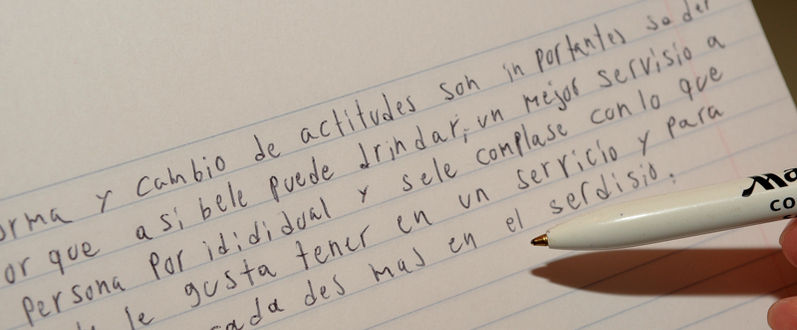 orma y cambio de actitudes son in portantes so der
or que asi bele puede drindar, un mejor servisio a
persona por idididual y sele complase con lo que
le gusta tener en un servicio y para
ada des mas en el serdisio.
Ma
CO